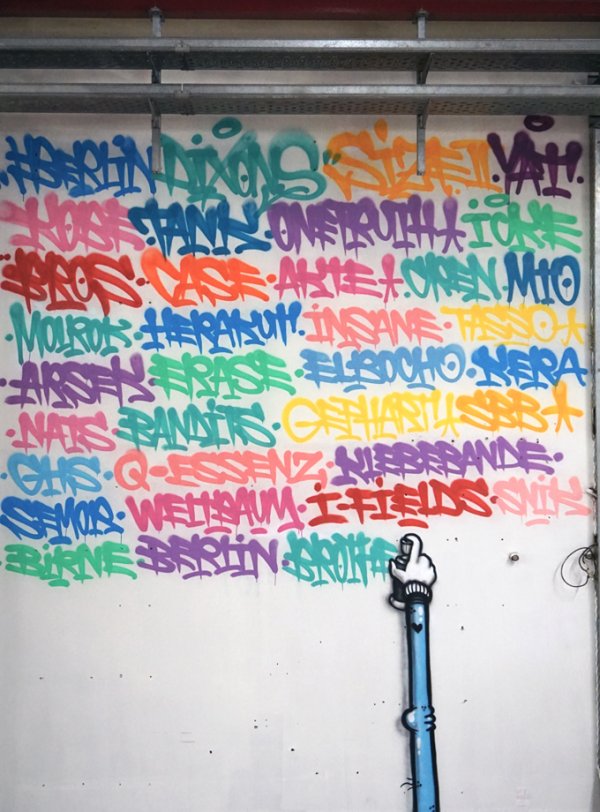 #BERLIN DIXONS SIZETWO YAT
KOBE TANK ONETRUTH ICKE
BROS CASE AKTE OREN MIO
MOIROK HERAKUT INSANE TASSO
ARSEK ERASE ELBOCHO NERA
NATS BANDITS GEPHART SBB
GHS Q-ESSENZ KLEBEBANDE
SEMOR WEITBAUM I-FIELDS SNIK
BIRNE BERLIN BROTHE